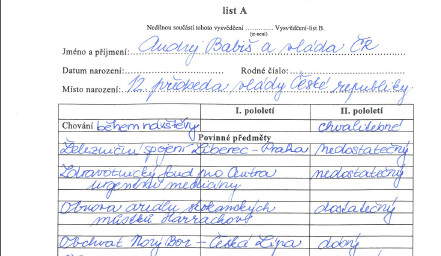 list A
Nedílnou součástí tohoto vysvědčení .............. Vysvědčení-list B.
(je-není)
Jméno a příjmení: Andrej Babiš a vláda ČR
Datum narození: Rodné číslo:
Místo narození: 12. předseda vlády České republiky
I. pololetí II. pololetí
Chování během návštěvy chvalitebné
Povinné předměty
Železniční spojení Liberec - Praha nedostatečný
Zdravotnický fond pro Centra nedostatečný
urgentní medicíny
Obnova areálu skokanských dostatečný
můstků Harrachov
Obchvat Nový Bor - Česká Lípa dobrý